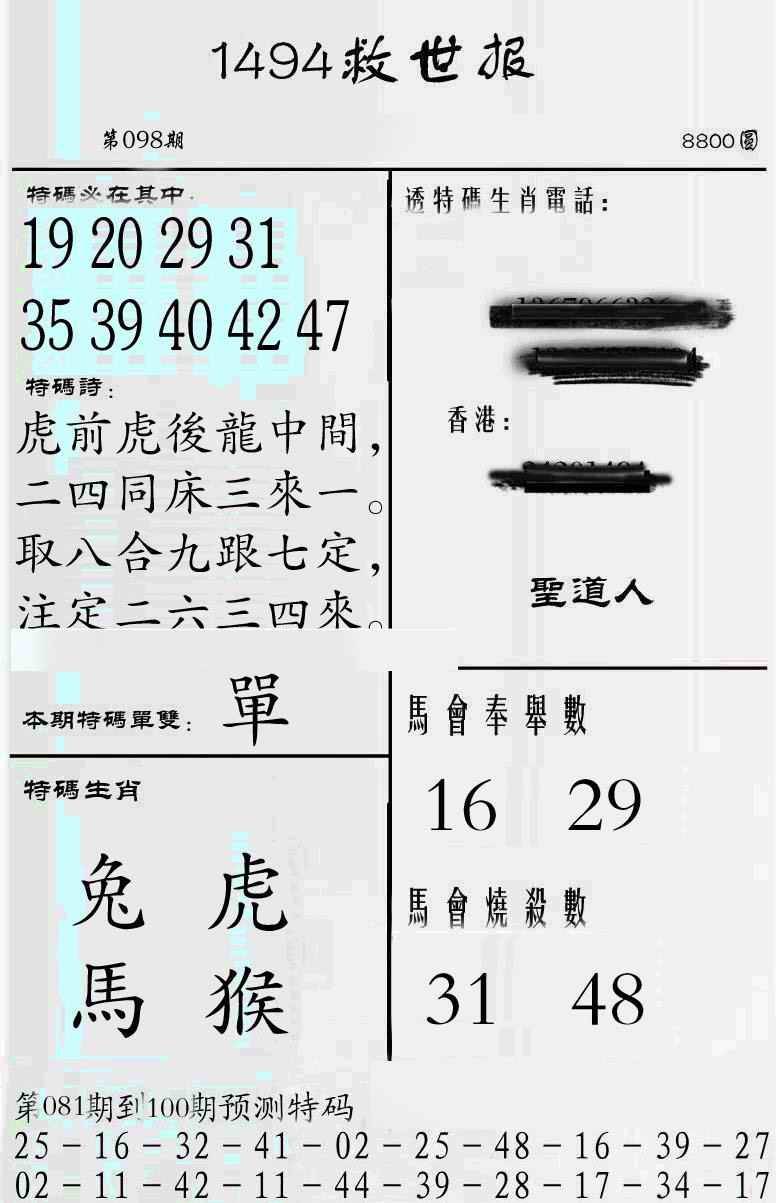 1494救世报
第098期
8800圓
特碼必在其中:
19 20 29 31
35 39 40 42 47
特碼詩:
虎前虎後龍中間,
二四同床三來一。
取八合九跟七定,
注定二六三四來。
本期特碼單雙: 單
特碼生肖
兔 虎
馬 猴
透特碼生肖電話:
香港:
聖道人
馬會奉舉數
16 29
馬會燒殺數
31 48
第081期到100期预测特码
25-16-32-41-02-25-48-16-39-27
02-11-42-11-44-39-28-17-34-17